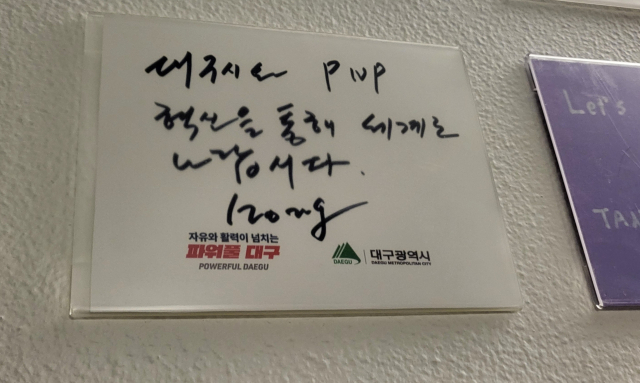 대구시와 PNP
혁신을 통해 세계로
나갑시다.
자유와 활력이 넘치는
파워풀 대구
POWERFUL DAEGU
DAEGU
대구광역시
DAEGU METROPOLITAN CITY
Let's